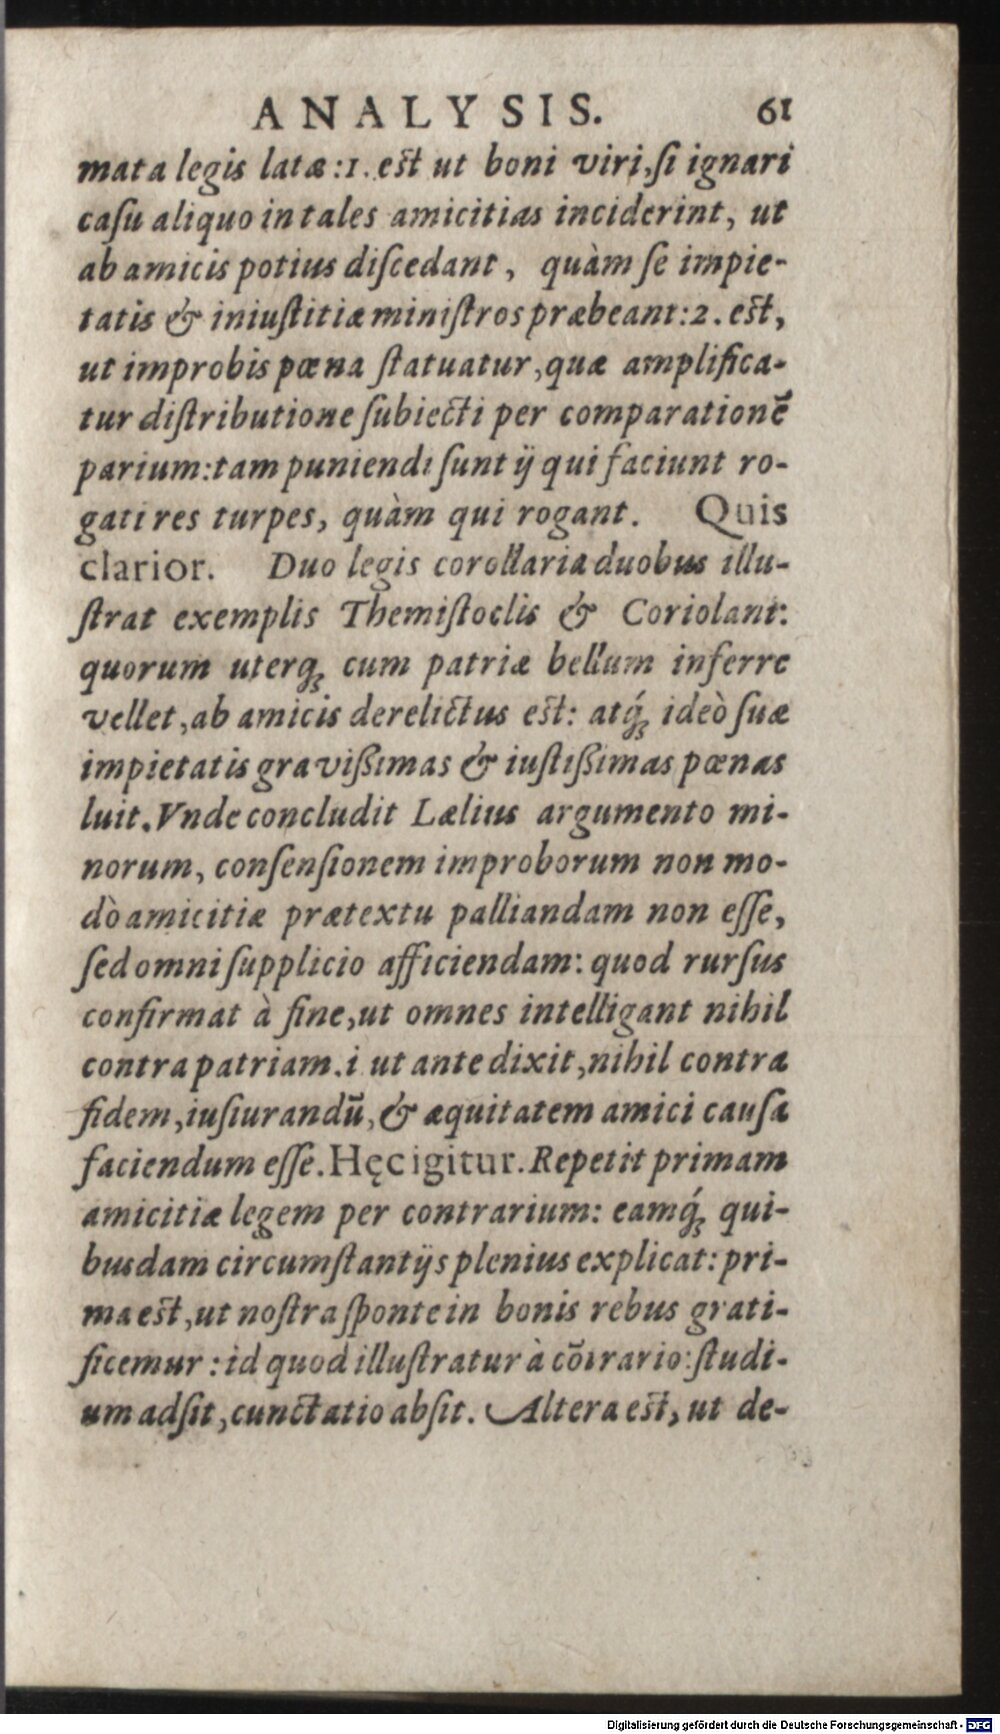 ANALYSIS. 61
mata legis latæ:1. est ut boni viri,ſi ignari
caſu aliquo in tales amicitias inciderint, ut
ab amicis potius diſcedant, quàm ſe impie-
tatis & iniuſtitiæ miniſtros præbeant:2. est,
ut improbis pœna ſtatuatur,quæ amplifica-
tur diſtributione ſubiecti per comparationē
parium:tam puniendi ſunt ij qui faciunt ro-
gati res turpes, quàm qui rogant. Quis
clarior. Duo legis corollaria duobus illu-
ſtrat exemplis Themiſtoclis & Coriolani:
quorum uterq́; cum patriæ bellum inferre
vellet,ab amicis derelictus est: atq́; ideò ſuæ
impietatis graviſsimas & iuſtiſsimas pœnas
luit.Vnde concludit Lælius argumento mi-
norum, conſenſionem improborum non mo-
dò amicitiæ prætextu palliandam non eſſe,
ſed omni ſupplicio afficiendam: quod rurſus
confirmat à fine,ut omnes intelligant nihil
contra patriam.i. ut ante dixit,nihil contra
fidem,iuſiurandū,& æquitatem amici cauſa
faciendum eſſe.Hęc igitur.Repetit primam
amicitiæ legem per contrarium: eamq́; qui-
busdam circumſtantijs plenius explicat:pri-
ma est,ut noſtra ſponte in bonis rebus grati-
ficemur:id quod illuſtratur à cōtrario:ſtudi-
um adſit,cunctatio abſit. Altera est, ut de-
Digitalisierung gefördert durch die Deutsche Forschungsgemeinschaft - DFG